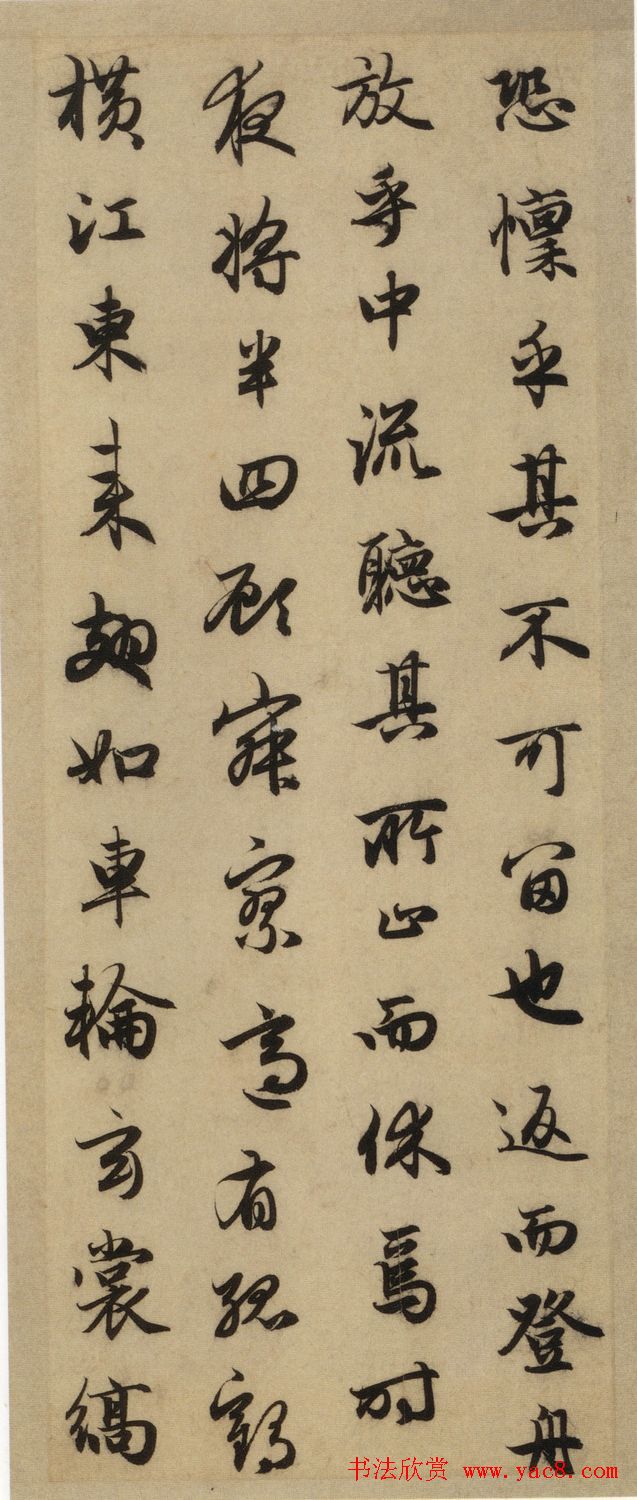 恐懔乎其不可留也返而登舟
放乎中流聽其所止而休焉时
夜將半四顾寂寥適有孤鹤
横江東来翅如車輪玄裳缟
书法欣赏 www.yac8.com